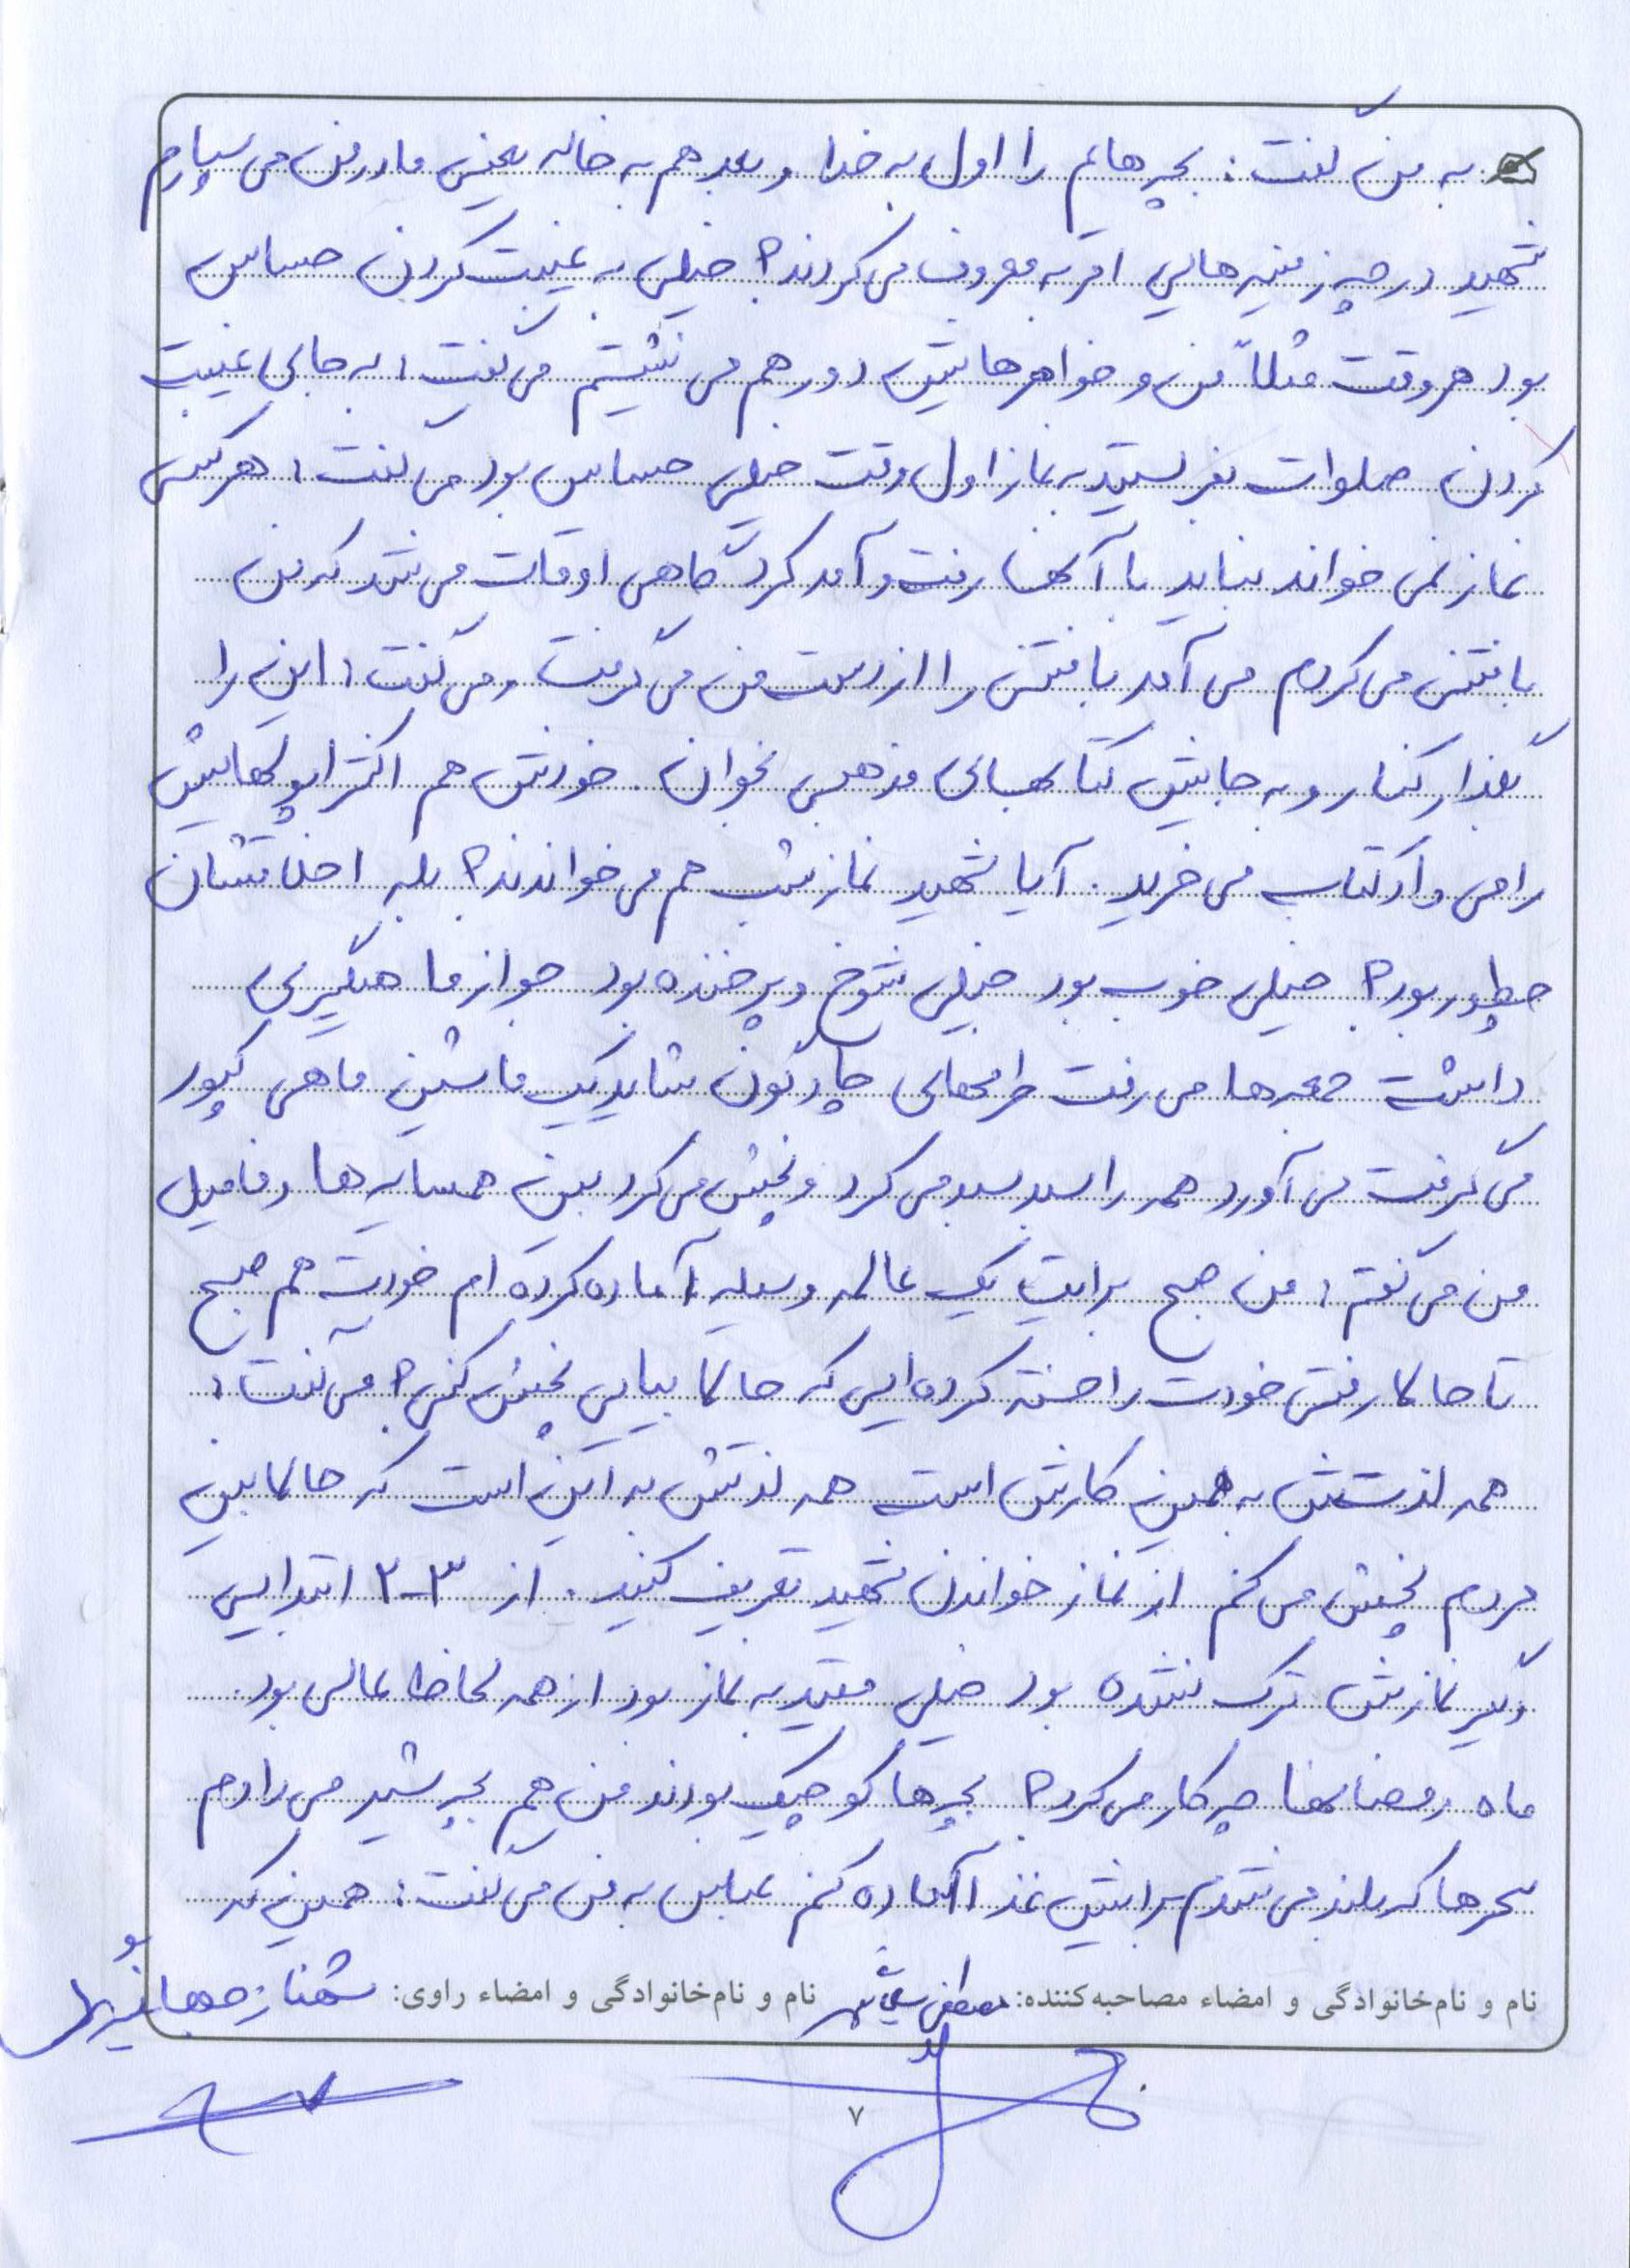 به من گفت: بچه هایم را اول به خدا و بعد هم به خاله یعنی مادر من می سپارم
شهید در چه زمینه هایی امر به معروف می کردند؟ خیلی به غیبت کردن حساس
بود هر وقت مثلاً من و خواهرهایش دور هم می نشستیم می گفت: به جای غیبت
کردن صلوات بفرستید به نماز اول وقت خیلی حساس بود می گفت: هر کس
نماز نمی خواند نباید با آنها رفت و آمد کرد گاهی اوقات می شد که من
بافتنی می کردم می آمد بافتنی را از دست من می گرفت و می گفت: این را
بگذار کنار و به جایش کتابهای مذهبی بخوان. خودش هم اکثر پولهایش
را می داد کتاب می خرید. آیا شهید نماز شب هم می خواندند؟ بله اخلاقشان
چطور بود؟ خیلی خوب بود خیلی شوخ و پرخنده بود جواز ماهیگیری
داشت جمعه ها می رفت طرحهای چادگون شاید یک ماشین ماهی کپور
می گرفت می آورد همه را سبد سبد می کرد و پخش می کرد بین همسایه ها و فامیل
من می گفتم: من صبح برایت یک عالمه وسیله آماده کرده ام خودت هم صبح
تا حالا رفتی خودت را خسته کرده ایی که حالا بیایی پخش کنی؟ می گفت:
همه لذتش به همین کارش است همه لذتش به این است که حالا بین
مردم پخش می کنم از نماز خواندن شهید تعریف کنید. از ۳-۲ ابتدایی
دیگر نمازش ترک نشده بود خیلی مقید به نماز بود از همه لحاظ عالی بود.
ماه رمضانها چه کار می کرد؟ بچه ها کوچیک بودند من هم بچه شیر می دادم
سحرها که بلند می شدم برایش غذا آماده کنم عباس به من می گفت: همین که
نام و نام‌خانوادگی و امضاء مصاحبه‌کننده: مصطفی نام و نام‌خانوادگی و امضاء راوی: شهناز
۷